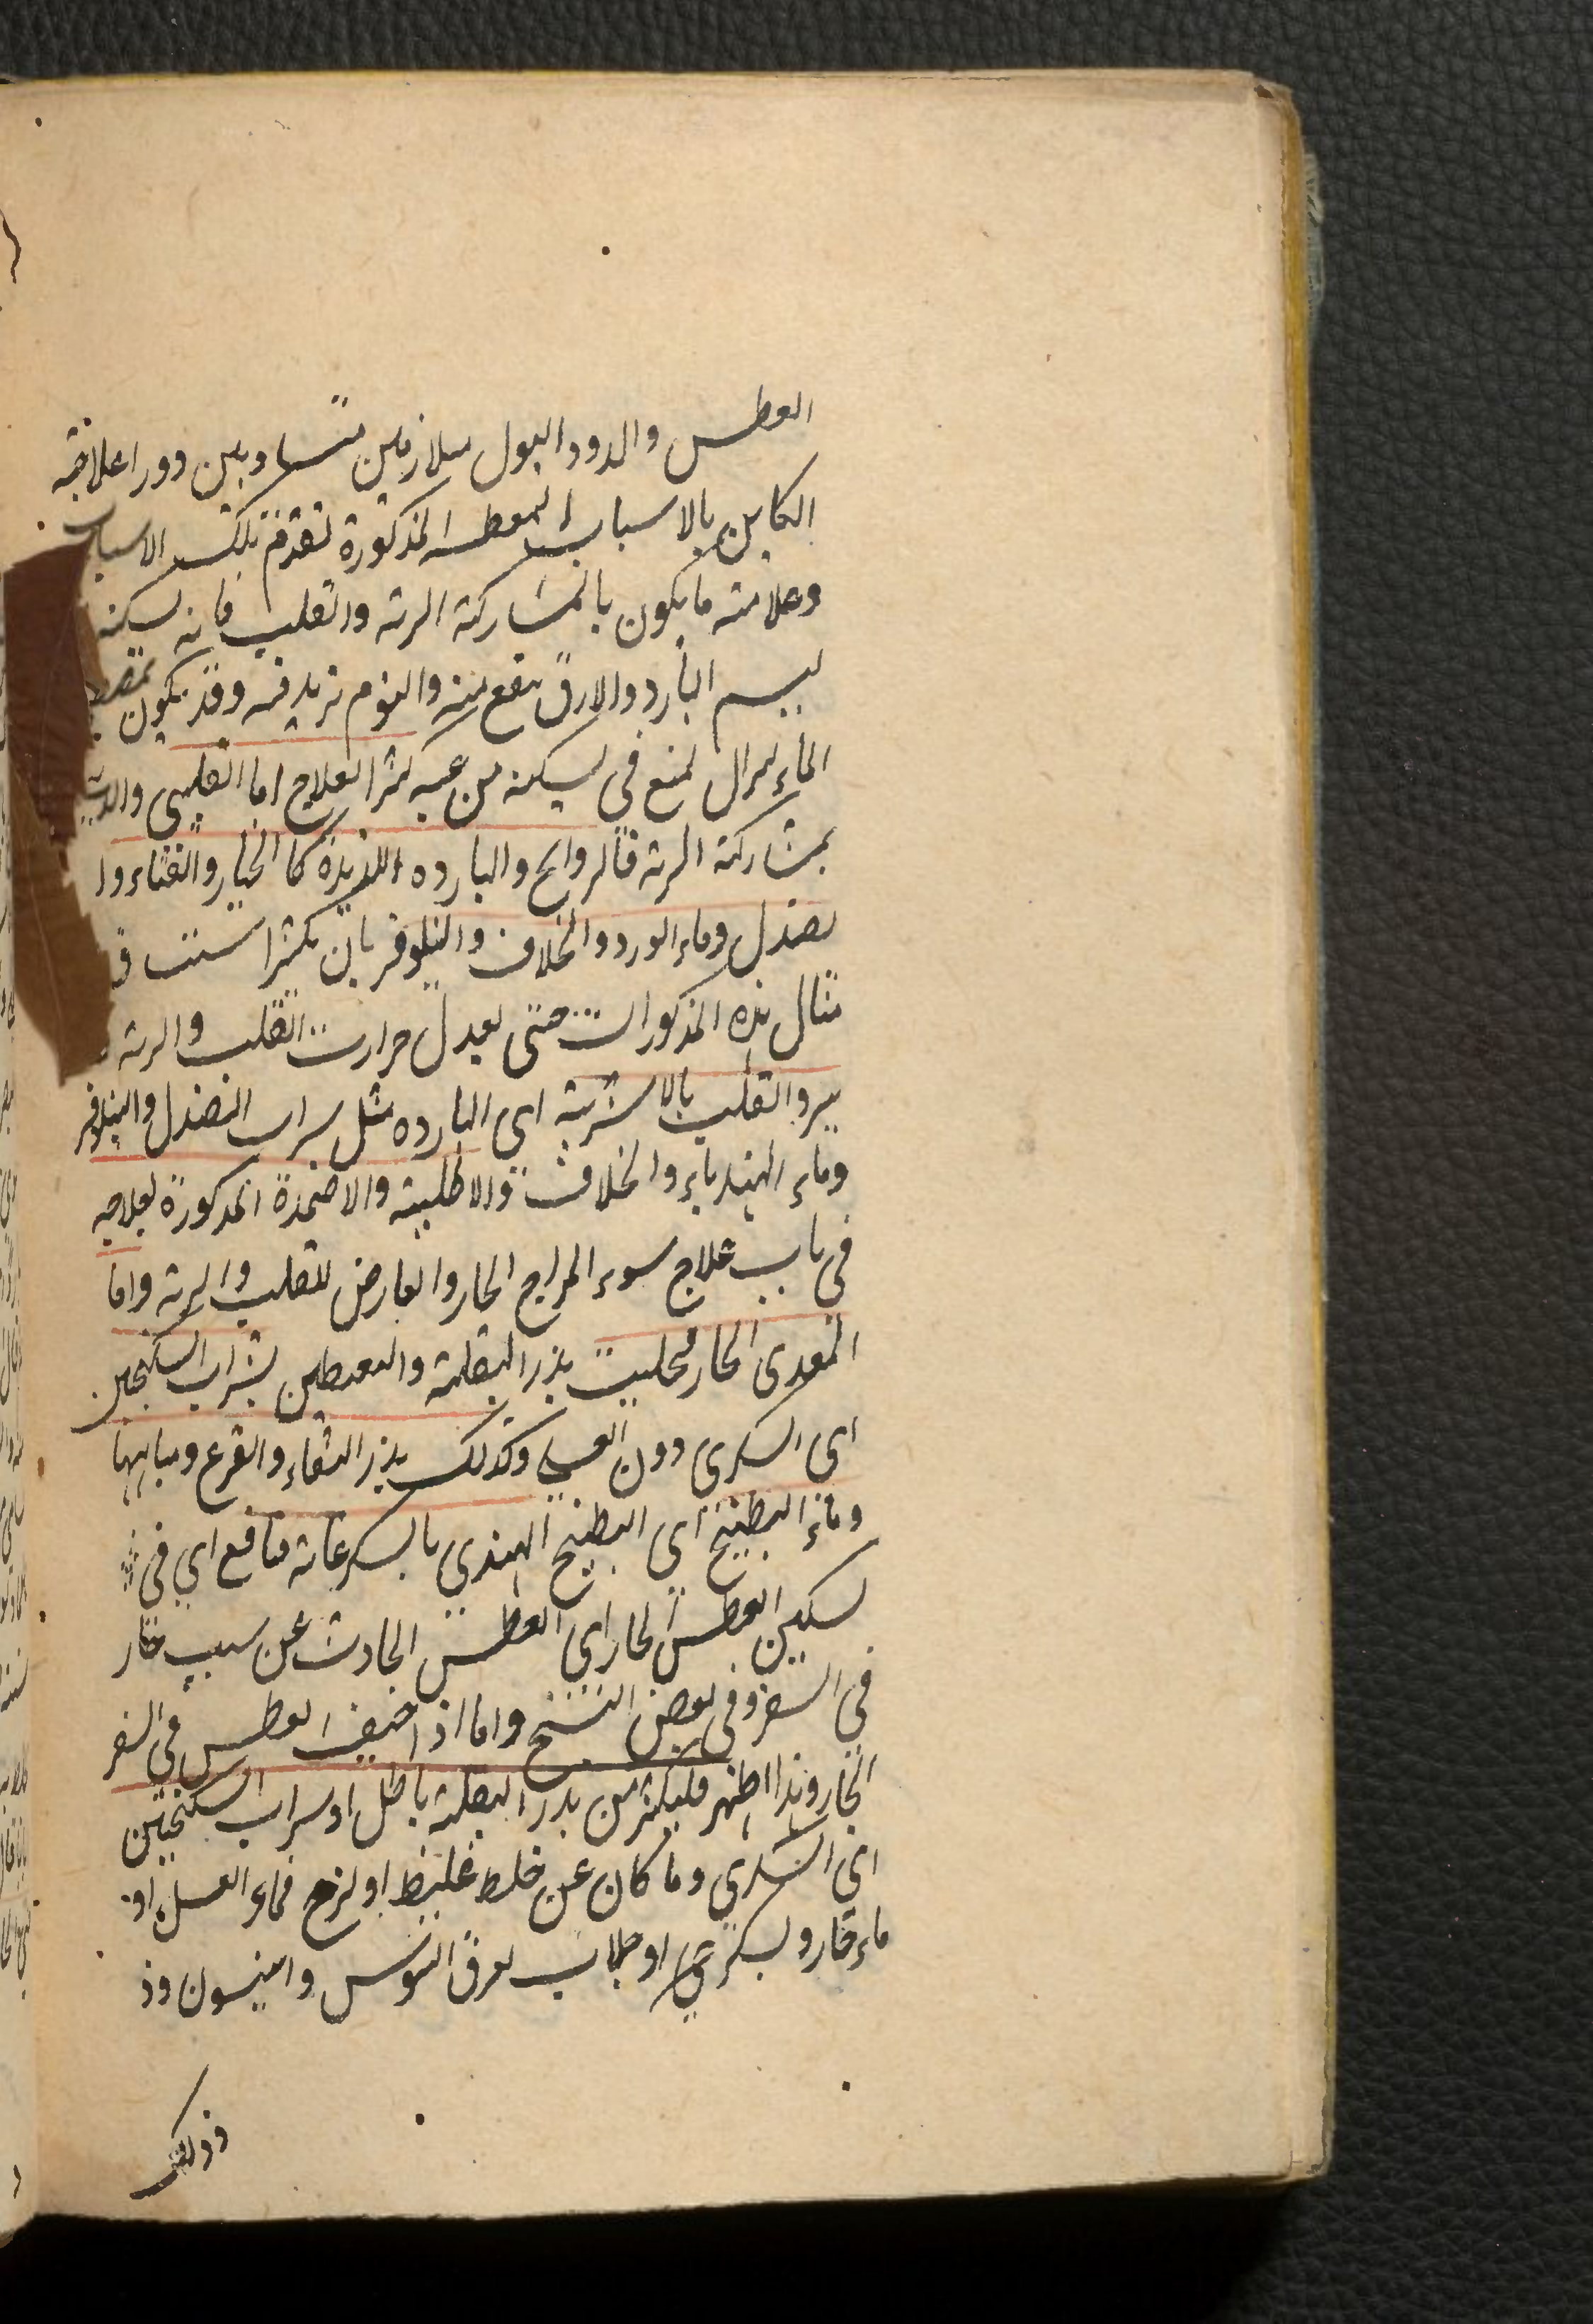 العطس والدود البول متلازمين متساويين دورا علاقته
الكاين بالاسباب المعطسه المذكورة تتقدم تلك الاسباب
وعلامته ما يكون بالمشاركة الرئه والقلب فانه يسكنه
البارد والارق ينفع منه والنوم يزيد فيه وقد يكون
الماء يمنع في تسكينه من عبه كثيرا العلاج اما القلبي والذي
بمشاركة الرئه فالروايح والبارده اللذيذة كالخيار والقثاء وا
لصندل وماء الورد والخلاف والنيلوفر بان يكثر استنشاق
مثال هذه المذكورات حتى يعدل حرارت القلب والرئه
يبرد القلب بالاشربة اى البارده مثل شراب الصندل والنيلوفر
وماء الهندباء والخلاف والاطلية والاضمدة المذكورة لعلاجه
فى باب علاج سوء المزاج الحار والعارض للقلب والرئه واما
المعدى الحار فحليب بذر البقلة واليقطين بشراب السكنجبين
اى السكرى دون العسلى وكذلك بذر القثاء والقرع ومياهها
وماء البطيخ اى البطيخ الهندي بالسكر غاية منافع اي في
تسكين العطس الحار اي العطس الحادث عن سبب حار
في السفر وفى بعض النسخ واما اذا خيف العطس في السفر
الحار وهذا اظهر فليكثر من بذر البقلة باطل او شراب السكنجبين
اي السكري وما كان عن خلط غليظ او لزج فماء العسل او
ماء حار وسكر او جلاب بعرق السوس وانيسون وذ
وذلك